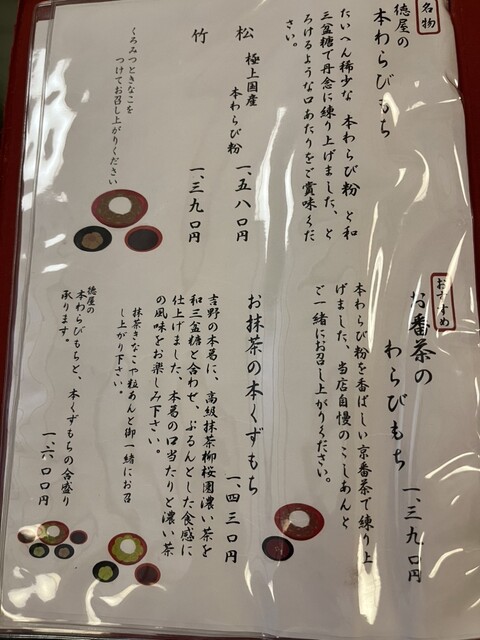 名物
徳屋の
本わらびもち
たいへん稀少な 本わらび粉 と和
三盆糖で丹念に練り上げました、と
ろけるような口あたりをご賞味くだ
さい。
松 極上国産
本わらび粉 一、五八〇円
竹 一、三九〇円
くろみつときなこを
つけてお召し上がりください
おすすめ
お番茶の
わらびもち 一、三九〇円
本わらび粉を香ばしい京番茶で練り上
げました、当店自慢のこしあんと
ご一緒にお召し上がりください。
お抹茶の本くずもち 一、四三〇円
吉野の本葛に、高級抹茶柳桜園濃い茶を
和三盆糖と合わせ、ぷるんとした食感に
仕上げました、本葛の口当たりと濃い茶
の風味をお楽しみ下さい。
抹茶きなこや粒あんと御一緒にお召
し上がり下さい。
徳屋の
本わらびもちと、本くずもちの合盛り
承ります。 一、六〇〇円